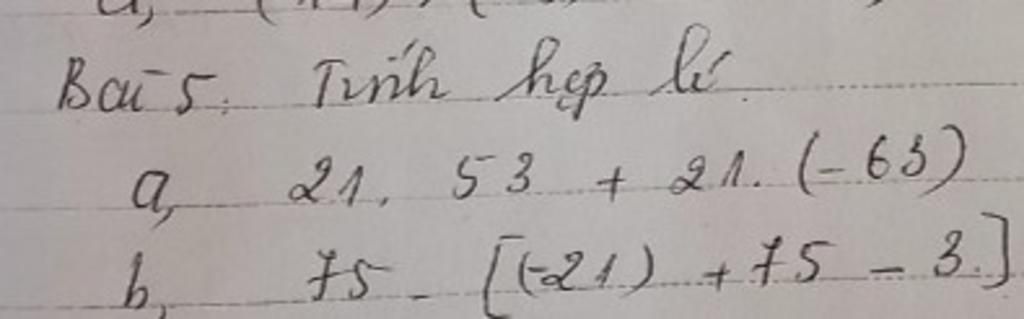 Bài 5. Tính hợp lí
a, 21. 53 + 21. (-63)
b, 75 - [(-21) + 75 - 3.]